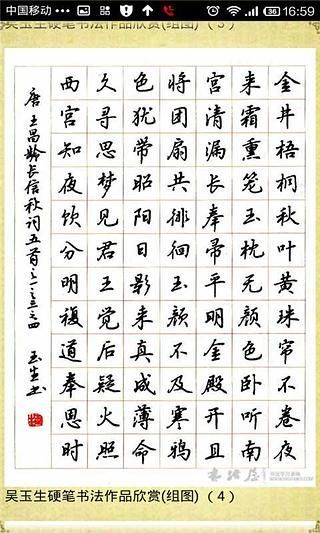 中国移动 36 16:59
吴玉生硬笔书法作品欣赏(组图) （3）
金井梧桐秋叶黄珠帘不卷夜
来霜熏笼玉枕无颜色卧听南
宫清漏长奉帚平明金殿开且
将团扇共徘徊玉颜不及寒鸦
色犹带昭阳日影来真成薄命
久寻思梦见君王觉后疑火照
西宫知夜饮分明複道奉恩时
唐王昌龄长信秋词五首之一之三之四 玉生书
吴玉生硬笔书法作品欣赏(组图) （4）